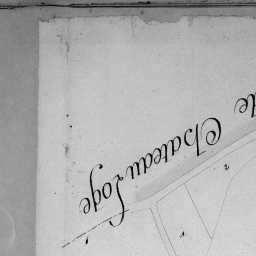 de Chateau Loge